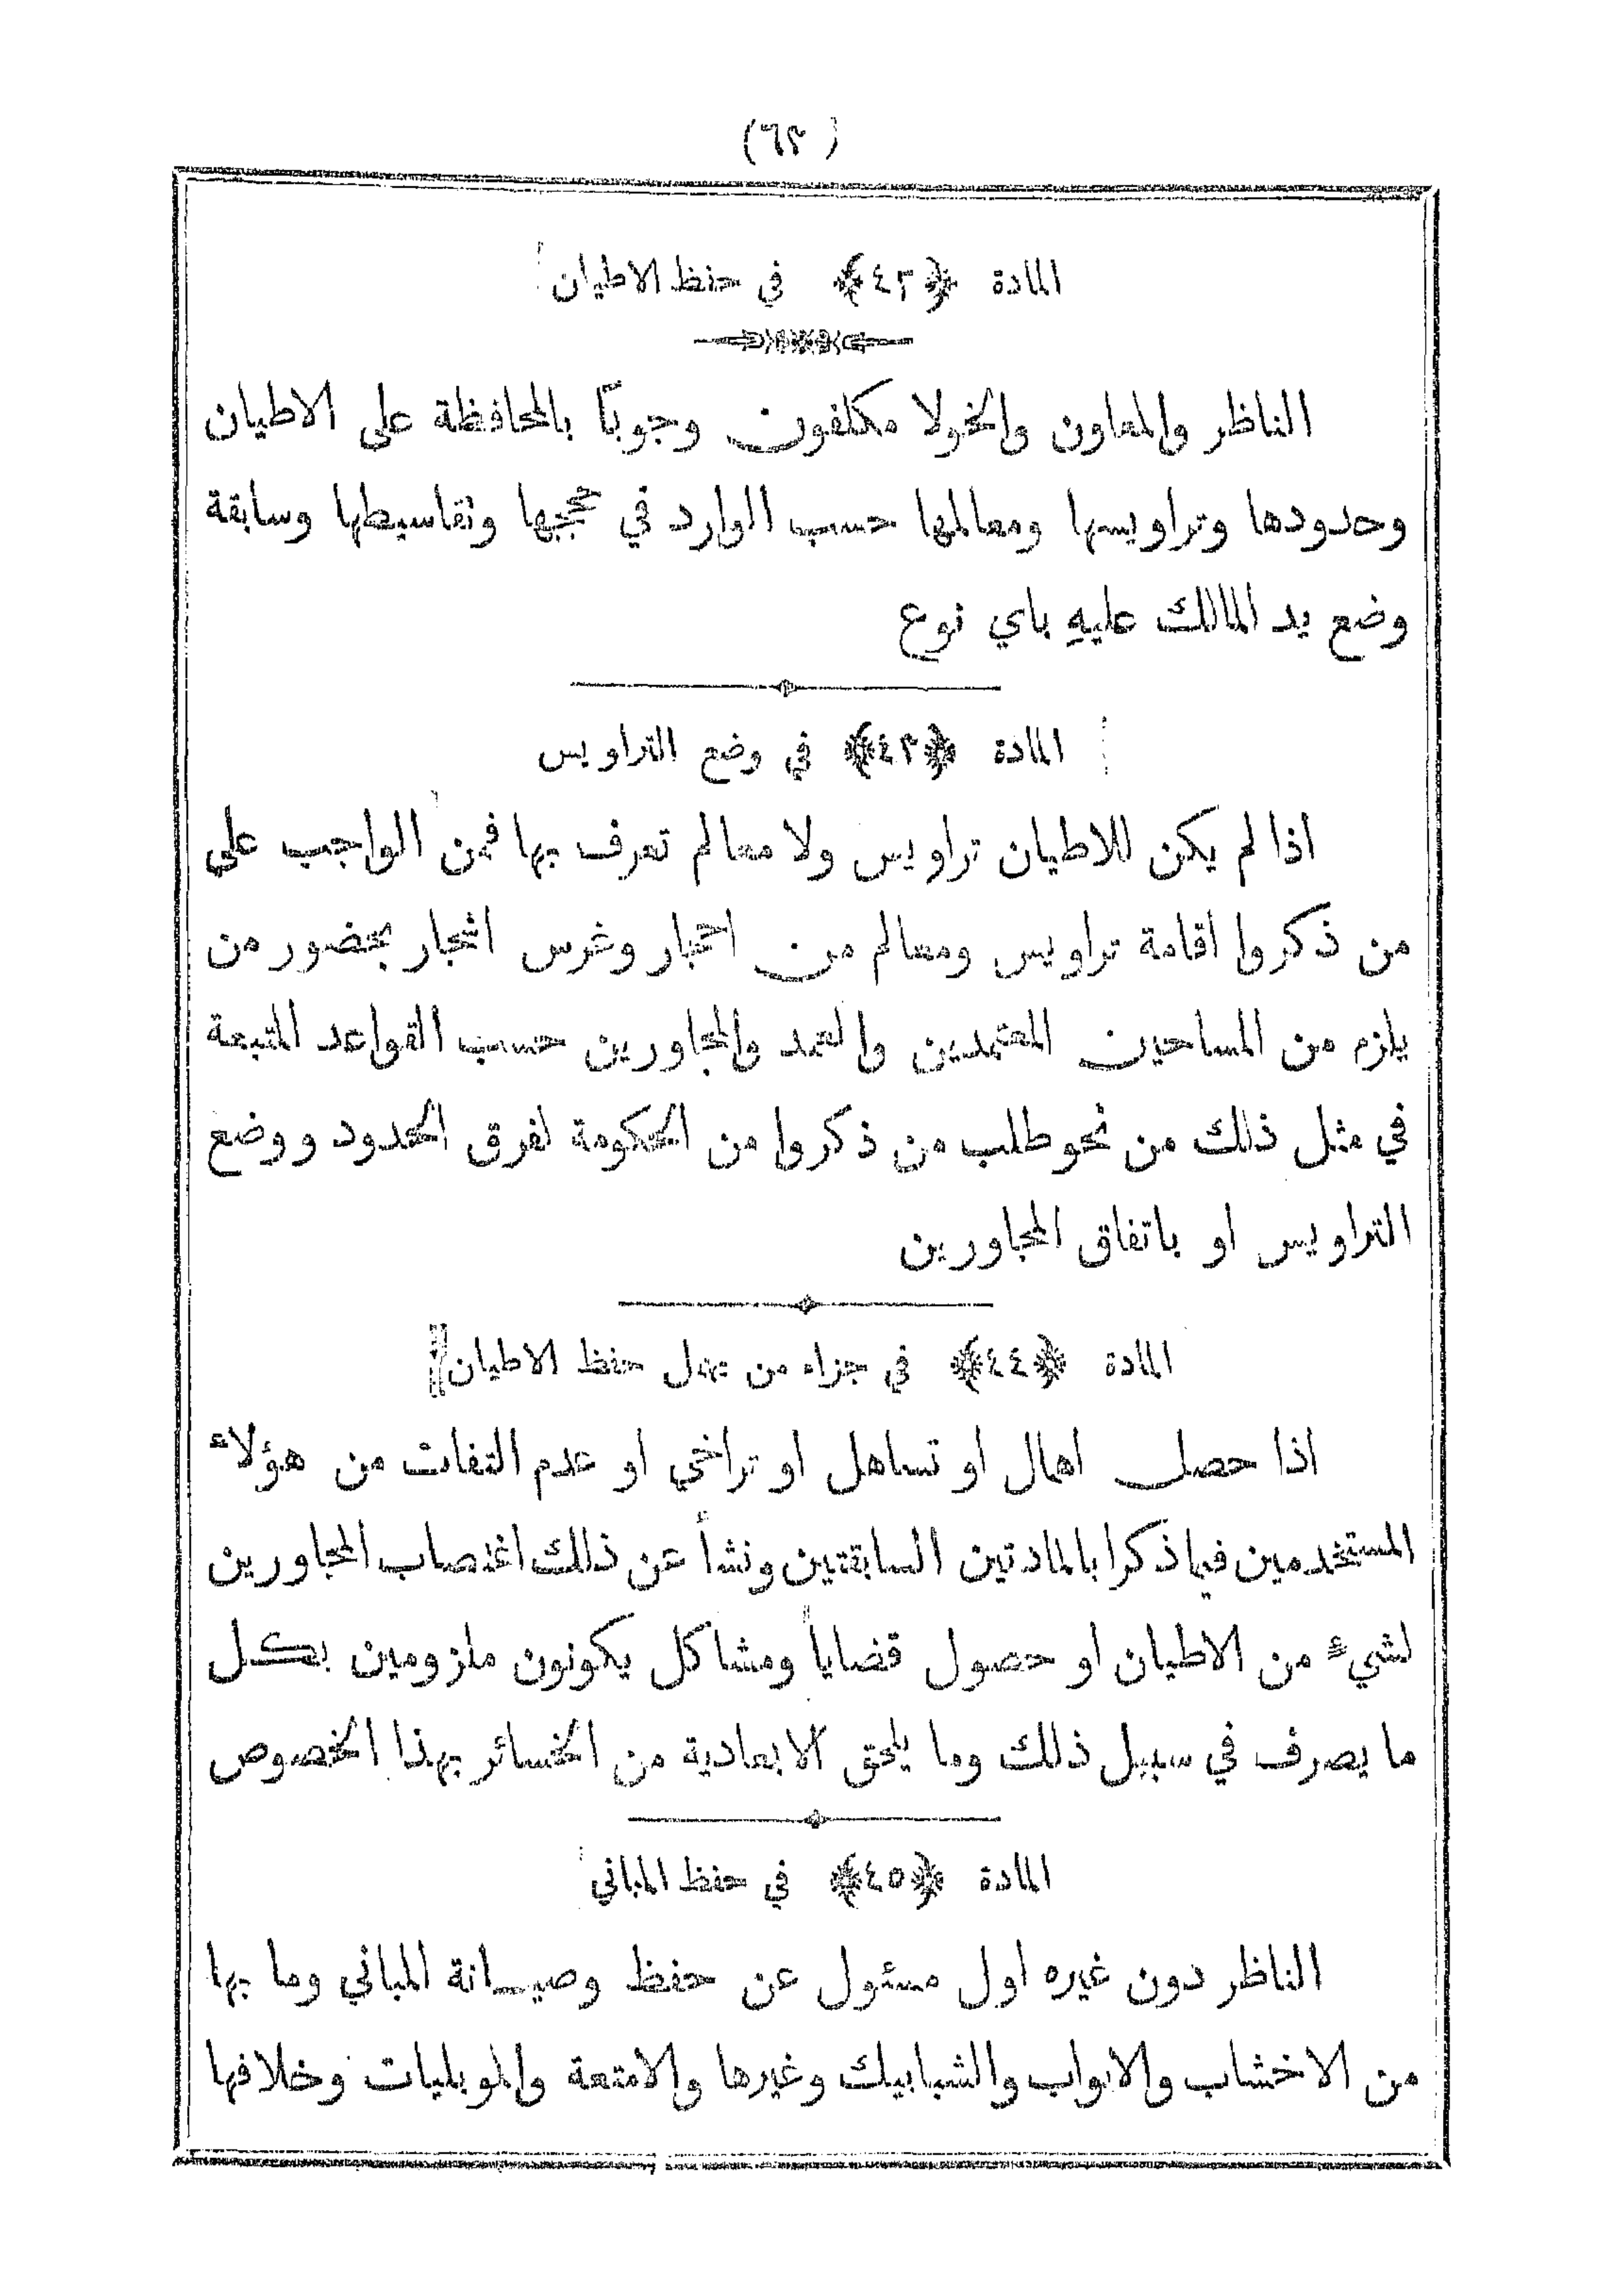 (٦٣)
المادة ﴿٤٢﴾ في حفظ الاطيان
الناظر والمعاون والخولا مكلفون وجوباً بالمحافظة على الاطيان
وحدودها وتراويسها ومعالمها حسب الوارد في حججها وتقاسيطها وسابقة
وضع يد المالك عليهِ باي نوع
المادة ﴿٤٣﴾ في وضع التراويس
اذا لم يكن للاطيان تراويس ولا معالم تعرف بها فمن الواجب على
من ذكروا اقامة تراويس ومعالم من احجار وغرس اشجار بحضور من
يلزم من المساحين المعتمدين والعمد والمجاورين حسب القواعد المتبعة
في مثل ذلك من نحو طلب من ذكروا من الحكومة لفرق الحدود ووضع
التراويس او باتفاق المجاورين
المادة ﴿٤٤﴾ في جزاء من يهمل حفظ الاطيان
اذا حصل اهمال او تساهل او تراخي او عدم التفات من هؤلاء
المستخدمين فيما ذكرا بالمادتين السابقتين ونشأ عن ذلك اغتصاب المجاورين
لشيء من الاطيان او حصول قضايا ومشاكل يكونون ملزومين بكل
ما يصرف في سبيل ذلك وما يلحق الابعادية من الخسائر بهذا الخصوص
المادة ﴿٤٥﴾ في حفظ المباني
الناظر دون غيره اول مسئول عن حفظ وصيانة المباني وما بها
من الاخشاب والابواب والشبابيك وغيرها والامتعة والموبليات وخلافها